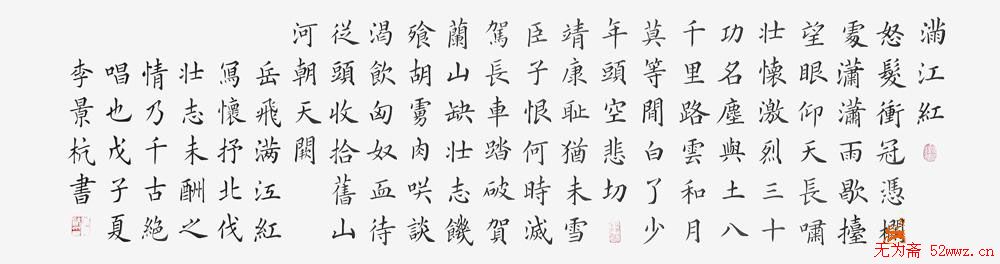 滿江紅
怒髮衝冠憑欄
處瀟瀟雨歇擡
望眼仰天長嘯
壯懷激烈三十
功名塵與土八
千里路雲和月
莫等間白了少
年頭空悲切
靖康耻猶未雪
臣子恨何時滅
駕長車踏破賀
蘭山缺壯志饑
飱胡虜肉咲談
渴飲匈奴血待
從頭收拾舊山
河朝天闕
岳飛滿江紅
寫懷抒北伐
壯志未酬之
情乃千古絕
唱也戊子夏
李景杭書
无为斋 52wwz.cn